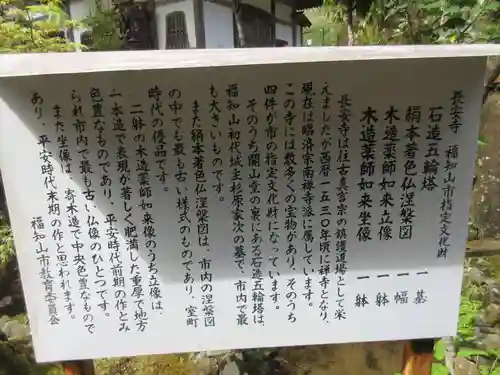 長安寺　福知山市指定文化財
石造五輪塔　一基
絹本著色仏涅槃図　一幅
木造薬師如来立像　一躰
木造薬師如来坐像　一躰
長安寺は往古真言宗の鎮護道場として栄
えましたが西暦一五三〇年頃に禅寺となり、
現在は臨済宗南禅寺派に属しています。
この寺には数多くの宝物があり、そのうち
四件が市の指定文化財になっています。
そのうち開山堂の裏にある石造五輪塔は、
福知山初代城主杉原家次の墓で、市内で最
も大きいものです。
また絹本著色仏涅槃図は、市内の涅槃図
の中でも最も古い様式のものであり、室町
時代の優品です。
二躰の木造薬師如来像のうち立像は
一木造で表現が著しく肥満した重厚で地方
色豊なものであり、平安時代前期の作とみ
られ市内で最も古い仏像のひとつです。
また坐像は、寄木造で中央色豊なもので
あり、平安時代末期の作と思われます。
福知山市教育委員会